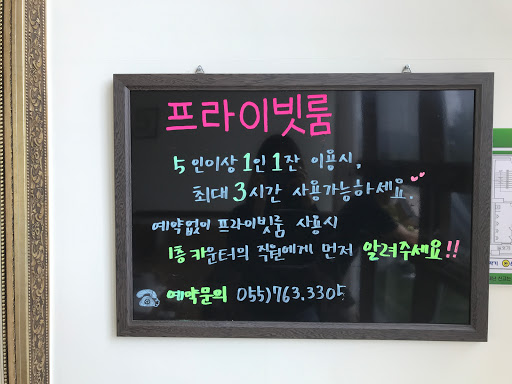 프라이빗룸
5인이상 1인 1잔 이용시,
최대 3시간 사용가능하세요.
예약없이 프라이빗룸 사용시
1층 카운터의 직원에게 먼저 알려주세요!!
예약문의 055)763.3305